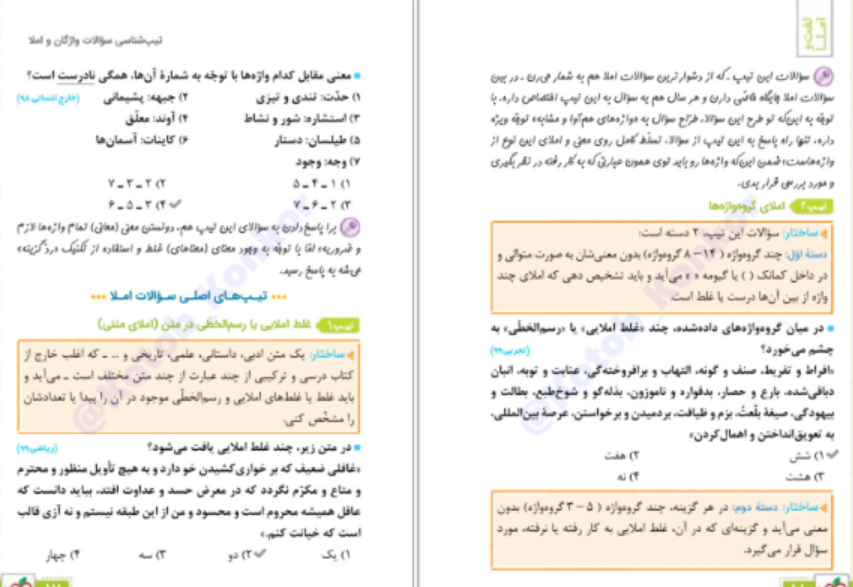 لغت و
املا
سؤالات این تیپ ـ که از دشوارترین سؤالات املا هم به شمار می‌رن ـ در بین
سؤالات املا جایگاه خاصّی دارن و هر سال هم یه سؤال به این تیپ اختصاص داره. با
توجّه به این‌که تو طرح این سؤالا، طرّاح سؤال به «واژه‌های هم‌آوا و مشابه» توجّه ویژه
داره، تنها راه پاسخ به این تیپ از سؤالا، تسلّط کامل روی معنی و املای این نوع از
واژه‌هاست؛ ضمن این‌که واژه‌ها رو باید توی همون عبارتی که به کار رفته در نظر بگیری
و مورد بررسی قرار بدی.
تیپ ۲ املای گروه‌واژه‌ها
ساختار: سؤالات این تیپ، ۲ دسته است:
دستهٔ اوّل: چند گروه‌واژه ( ۱۴ – ۸ گروه‌واژه) بدون معنی‌شان به صورت متوالی و
در داخل کمانک ( ) یا گیومه « » می‌آید و باید تشخیص دهی که املای چند
واژه از بین آن‌ها درست یا غلط است.
در میان گروه‌واژه‌های داده‌شده، چند «غلط املایی» یا «رسم‌الخطّی» به
چشم می‌خورد؟ (تجربی ۹۹)
«افراط و تفریط، صنف و گونه، التهاب و برافروختگی، عنابت و توبه، اتبان
دباغی‌شده، بارع و حصار، بدقواره و ناموزون، بذله‌گو و شوخ‌طبع، بطالت و
بیهودگی، صیغهٔ بلّغتُ، بزم و ظیافت، بردمیدن و برخواستن، عرصهٔ بین‌المللی،
به تعویق‌انداختن و اهمال‌کردن»
۱) شش ۲) هفت
۳) هشت ۴) نه
ساختار: دستهٔ دوم: در هر گزینه، چند گروه‌واژه ( ۵ – ۳ گروه‌واژه) بدون
معنی می‌آید و گزینه‌ای که در آن، غلط املایی به کار رفته یا نرفته، مورد
سؤال قرار می‌گیرد.
تیپ‌شناسی سؤالات واژگان و املا
معنی مقابل کدام واژه‌ها با توجّه به شمارهٔ آن‌ها، همگی نادرست است؟
۱) حدّت: تندی و تیزی ۲) جبهه: پیشمانی (خارج انسانی ۹۸)
۳) استشاره: شور و نشاط ۴) آوند: معلّق
۵) طیلسان: دستار ۶) کاینات: آسمان‌ها
۷) وجه: وجود
۱) ۱ – ۴ – ۵ ۲) ۲ – ۳ – ۷
۳) ۲ – ۶ – ۷ ۴) ۳ – ۵ – ۶
برا پاسخ‌دادن به سؤالای این تیپ هم، دونستن معنی (معانی) تمام واژه‌ها لازم
و ضروریه؛ امّا با توجّه به وجود معنای (معناهای) غلط و استفاده از تکنیک «ردّ گزینه»
می‌شه به پاسخ رسید.
تیـپ‌هـای اصلـی سـؤالات امـلا
تیپ ۱ غلط املایی یا رسم‌الخطّی در متن (املای متنی)
ساختار: یک متن ادبی، داستانی، علمی، تاریخی و ... ـ که اغلب خارج از
کتاب درسی و ترکیبی از چند عبارت از چند متن مختلف است ـ می‌آید و
باید غلط یا غلط‌های املایی و رسم‌الخطّی موجود در آن را پیدا یا تعدادشان
را مشخّص کنی.
در متن زیر، چند غلط املایی یافت می‌شود؟ (ریاضی ۹۹)
«غافلی ضعیف که بر خواری کشیدن خو دارد و به هیچ تأویل منظور و محترم
و متاع و مکرّم نگردد که در معرض حسد و عداوت افتد، بباید دانست که
عاقل همیشه محروم است و محسود و من از این طبقه نیستم و نه آزی قالب
است که خیانت کنم.»
۱) یک ۲) دو ۳) سه ۴) چهار
@Kotob_Konkor
@Kotob_Konkor